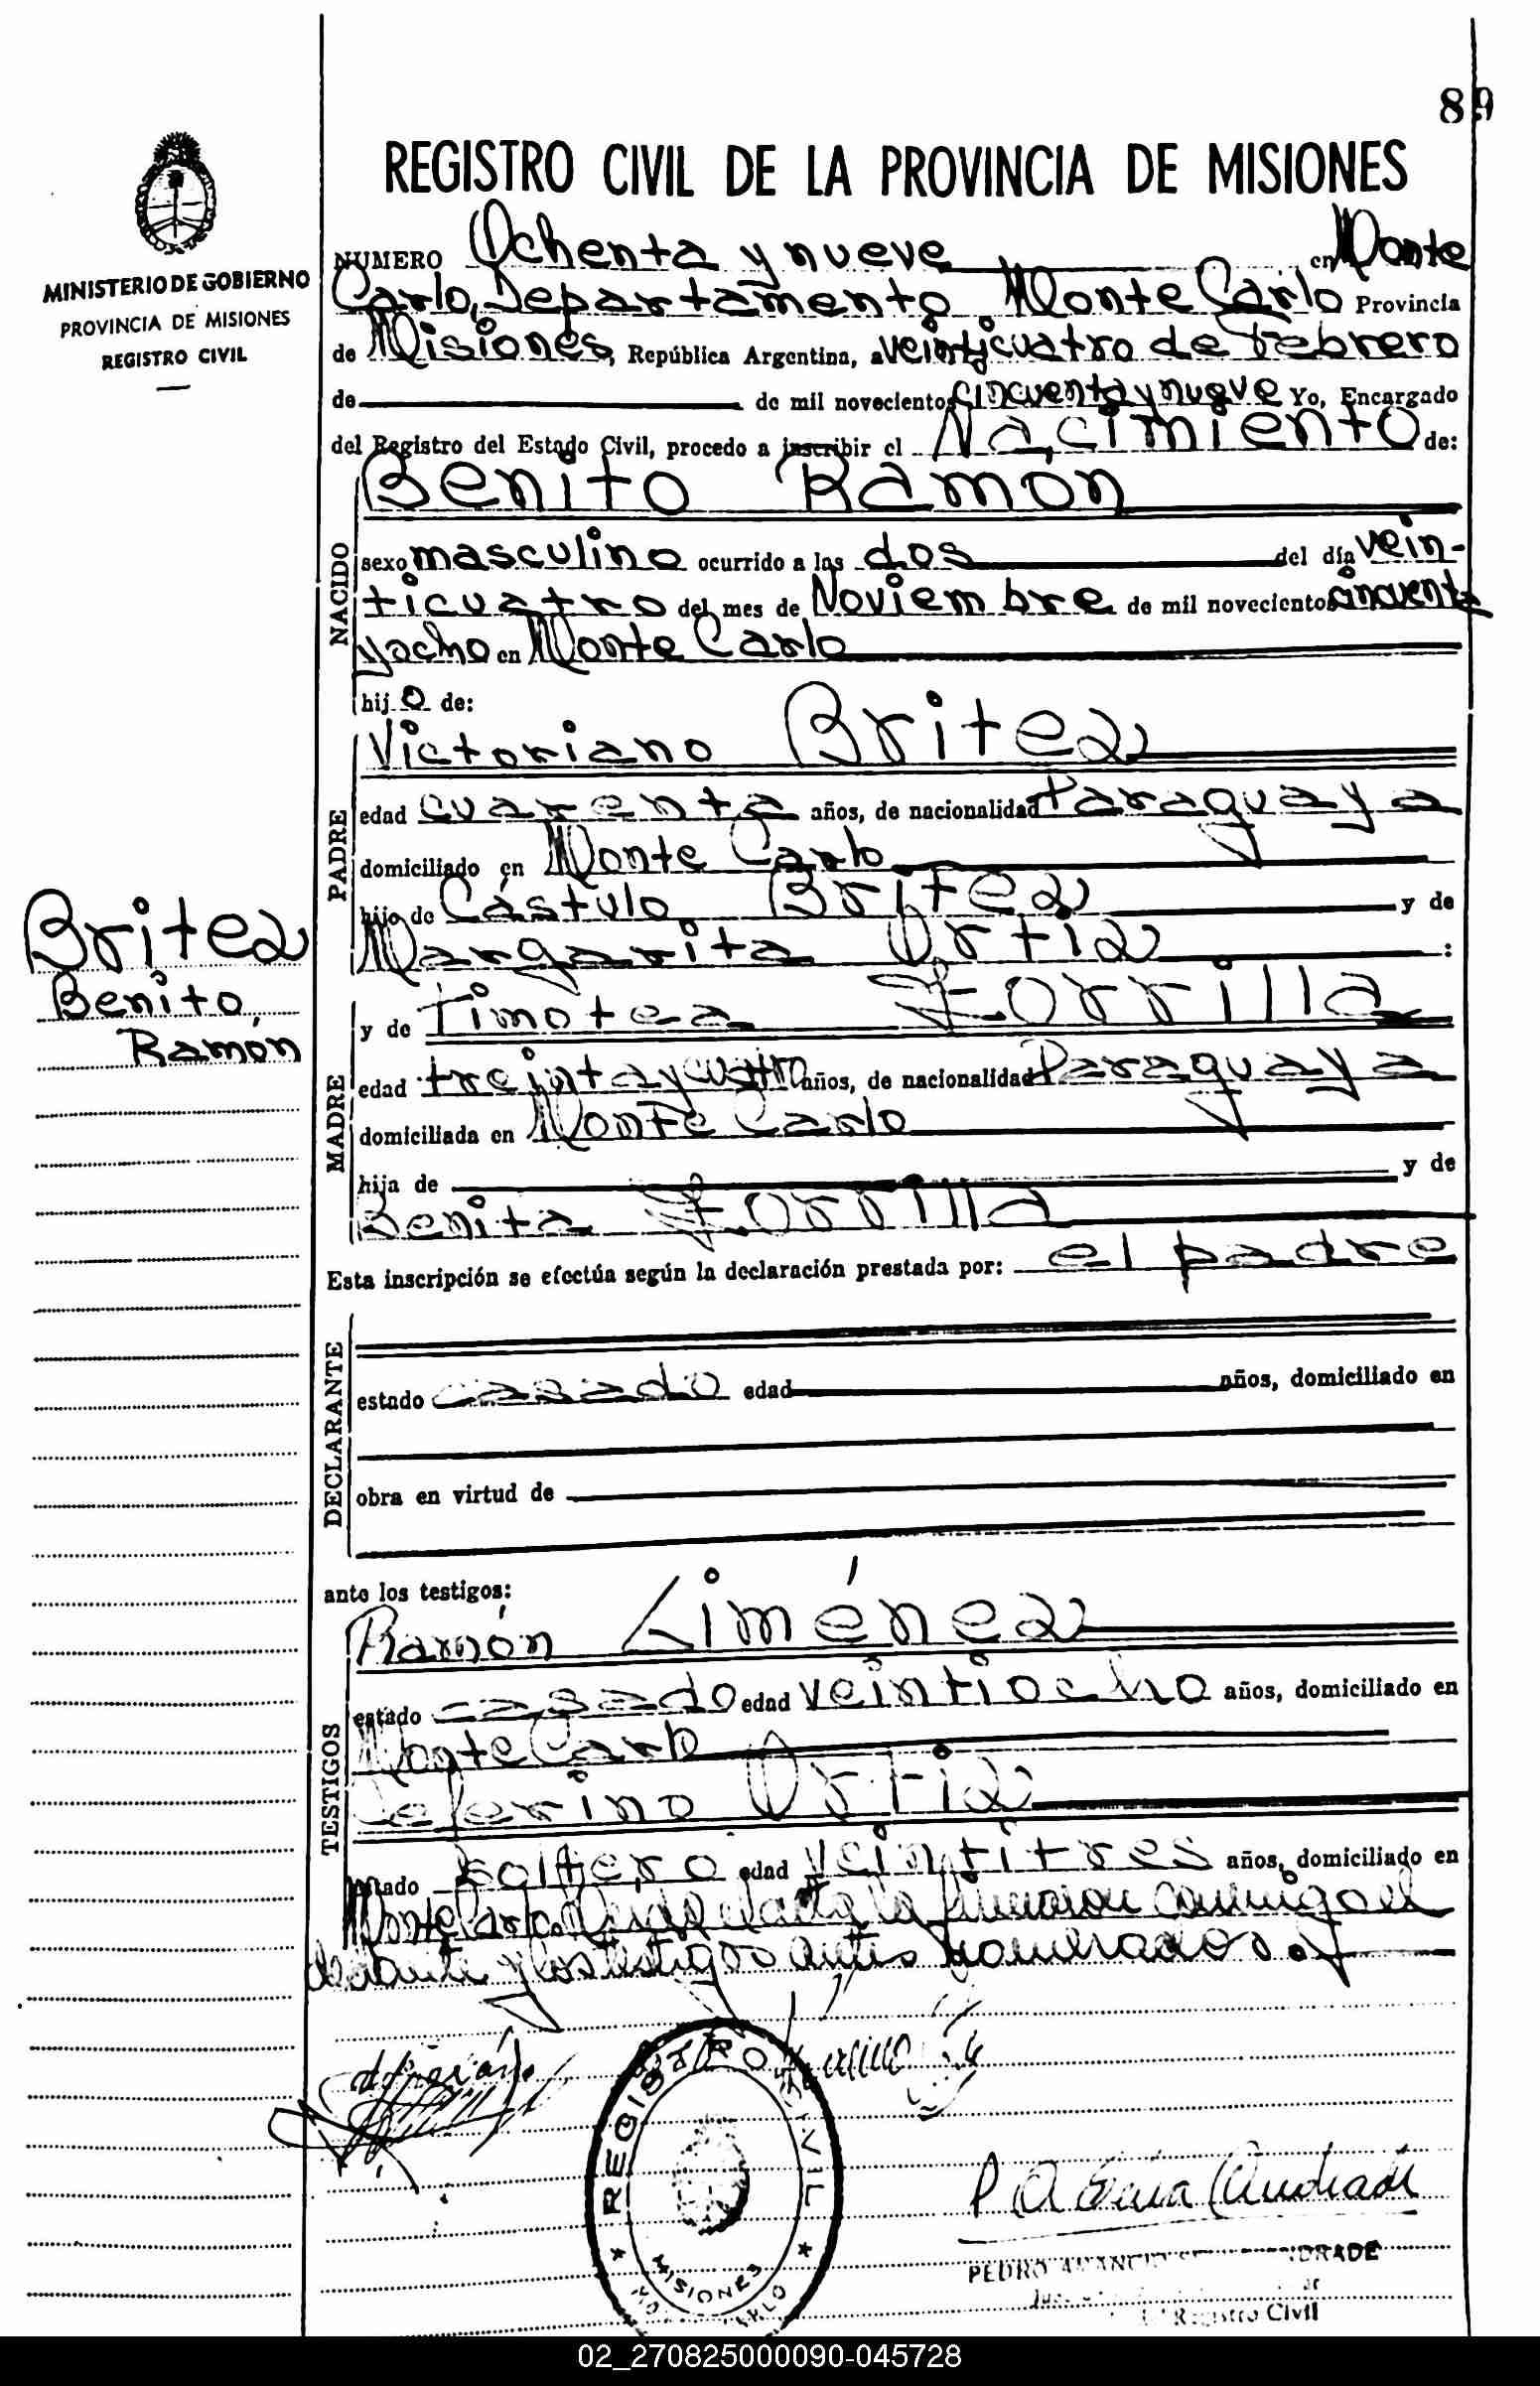 89
REGISTRO CIVIL DE LA PROVINCIA DE MISIONES
MINISTERIO DE GOBIERNO
PROVINCIA DE MISIONES
REGISTRO CIVIL
NUMERO Ochenta y nueve en Monte
Carlo, Departamento Monte Carlo Provincia
de Misiones, República Argentina, a veinticuatro de Febrero
de de mil novecientos cincuenta y nueve Yo, Encargado
del Registro del Estado Civil, procedo a inscribir el Nacimiento de:
NACIDO
Benito Ramón
sexo masculino ocurrido a las dos del día vein-
ticuatro del mes de Noviembre de mil novecientos cincuenta
y ocho en Monte Carlo
hijo de:
PADRE
Victoriano Britez
edad cuarenta años, de nacionalidad Paraguaya
domiciliado en Monte Carlo
hijo de Cástulo Britez y de
Margarita Ortiz :
Britez
Benito
Ramón
MADRE
y de Timotea Zorrilla
edad treinta y cuatro años, de nacionalidad Paraguaya
domiciliada en Monte Carlo
hija de y de
Benita Zorrilla
Esta inscripción se efectúa según la declaración prestada por: el padre
DECLARANTE
estado casado edad años, domiciliado en
obra en virtud de
ante los testigos:
TESTIGOS
Ramón Giménez
estado casado edad veintiocho años, domiciliado en
Monte Carlo
Ceferino Ortiz
estado soltero edad veintitres años, domiciliado en
Monte Carlo. Leída el acta la firmaron conmigo el
declarante y los testigos antes nombrados.
REGISTRO CIVIL
MISIONES
PEDRO ANDRADE
Registro Civil
02_270825000090-045728